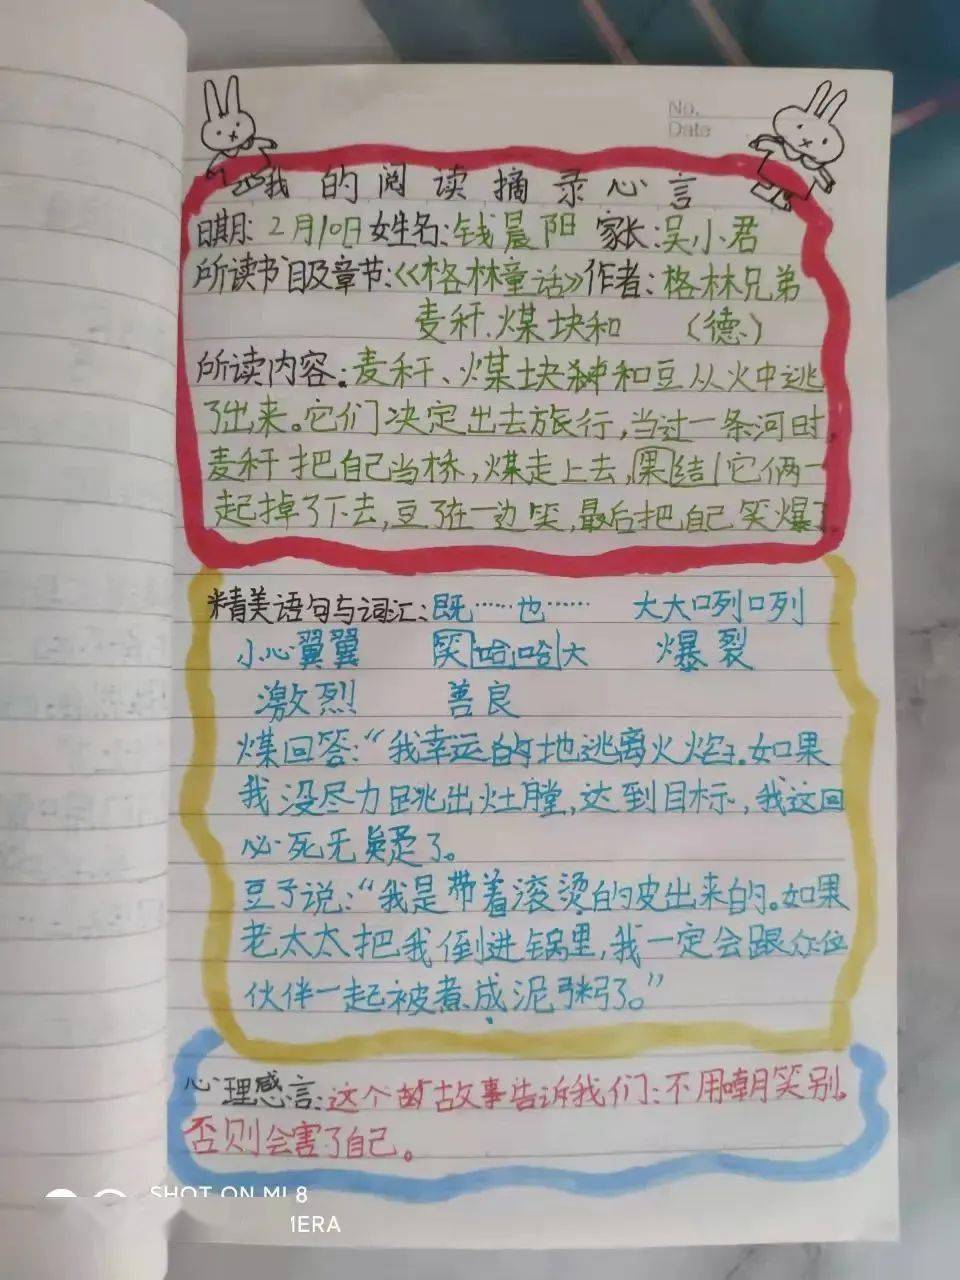 No.
Date
我的阅读摘录心言
日期:2月10日 姓名:钱晨阳 家长:吴小君
所读书目及章节:《格林童话》作者:格林兄弟
麦秆、煤块和 (德)
所读内容:麦秆、煤块和豆从火中逃
了出来。它们决定出去旅行,当过一条河时,
麦秆把自己当桥,煤走上去,果结它俩一
起掉了下去,豆子在一边笑,最后把自己笑爆了
精美语句与词汇:既……也…… 大大咧咧
小心翼翼 笑哈哈大 爆裂
激烈 善良
煤回答:“我幸运的地逃离火焰。如果
我没尽力跳出灶膛,达到目标,我这回
必死无疑了。
豆子说:“我是带着滚烫的皮出来的。如果
老太太把我倒进锅里,我一定会跟众位
伙伴一起被煮成泥粥了。”
心理感言:这个故事告诉我们:不用嘲笑别
否则会害了自己。
SHOT ON MI 8